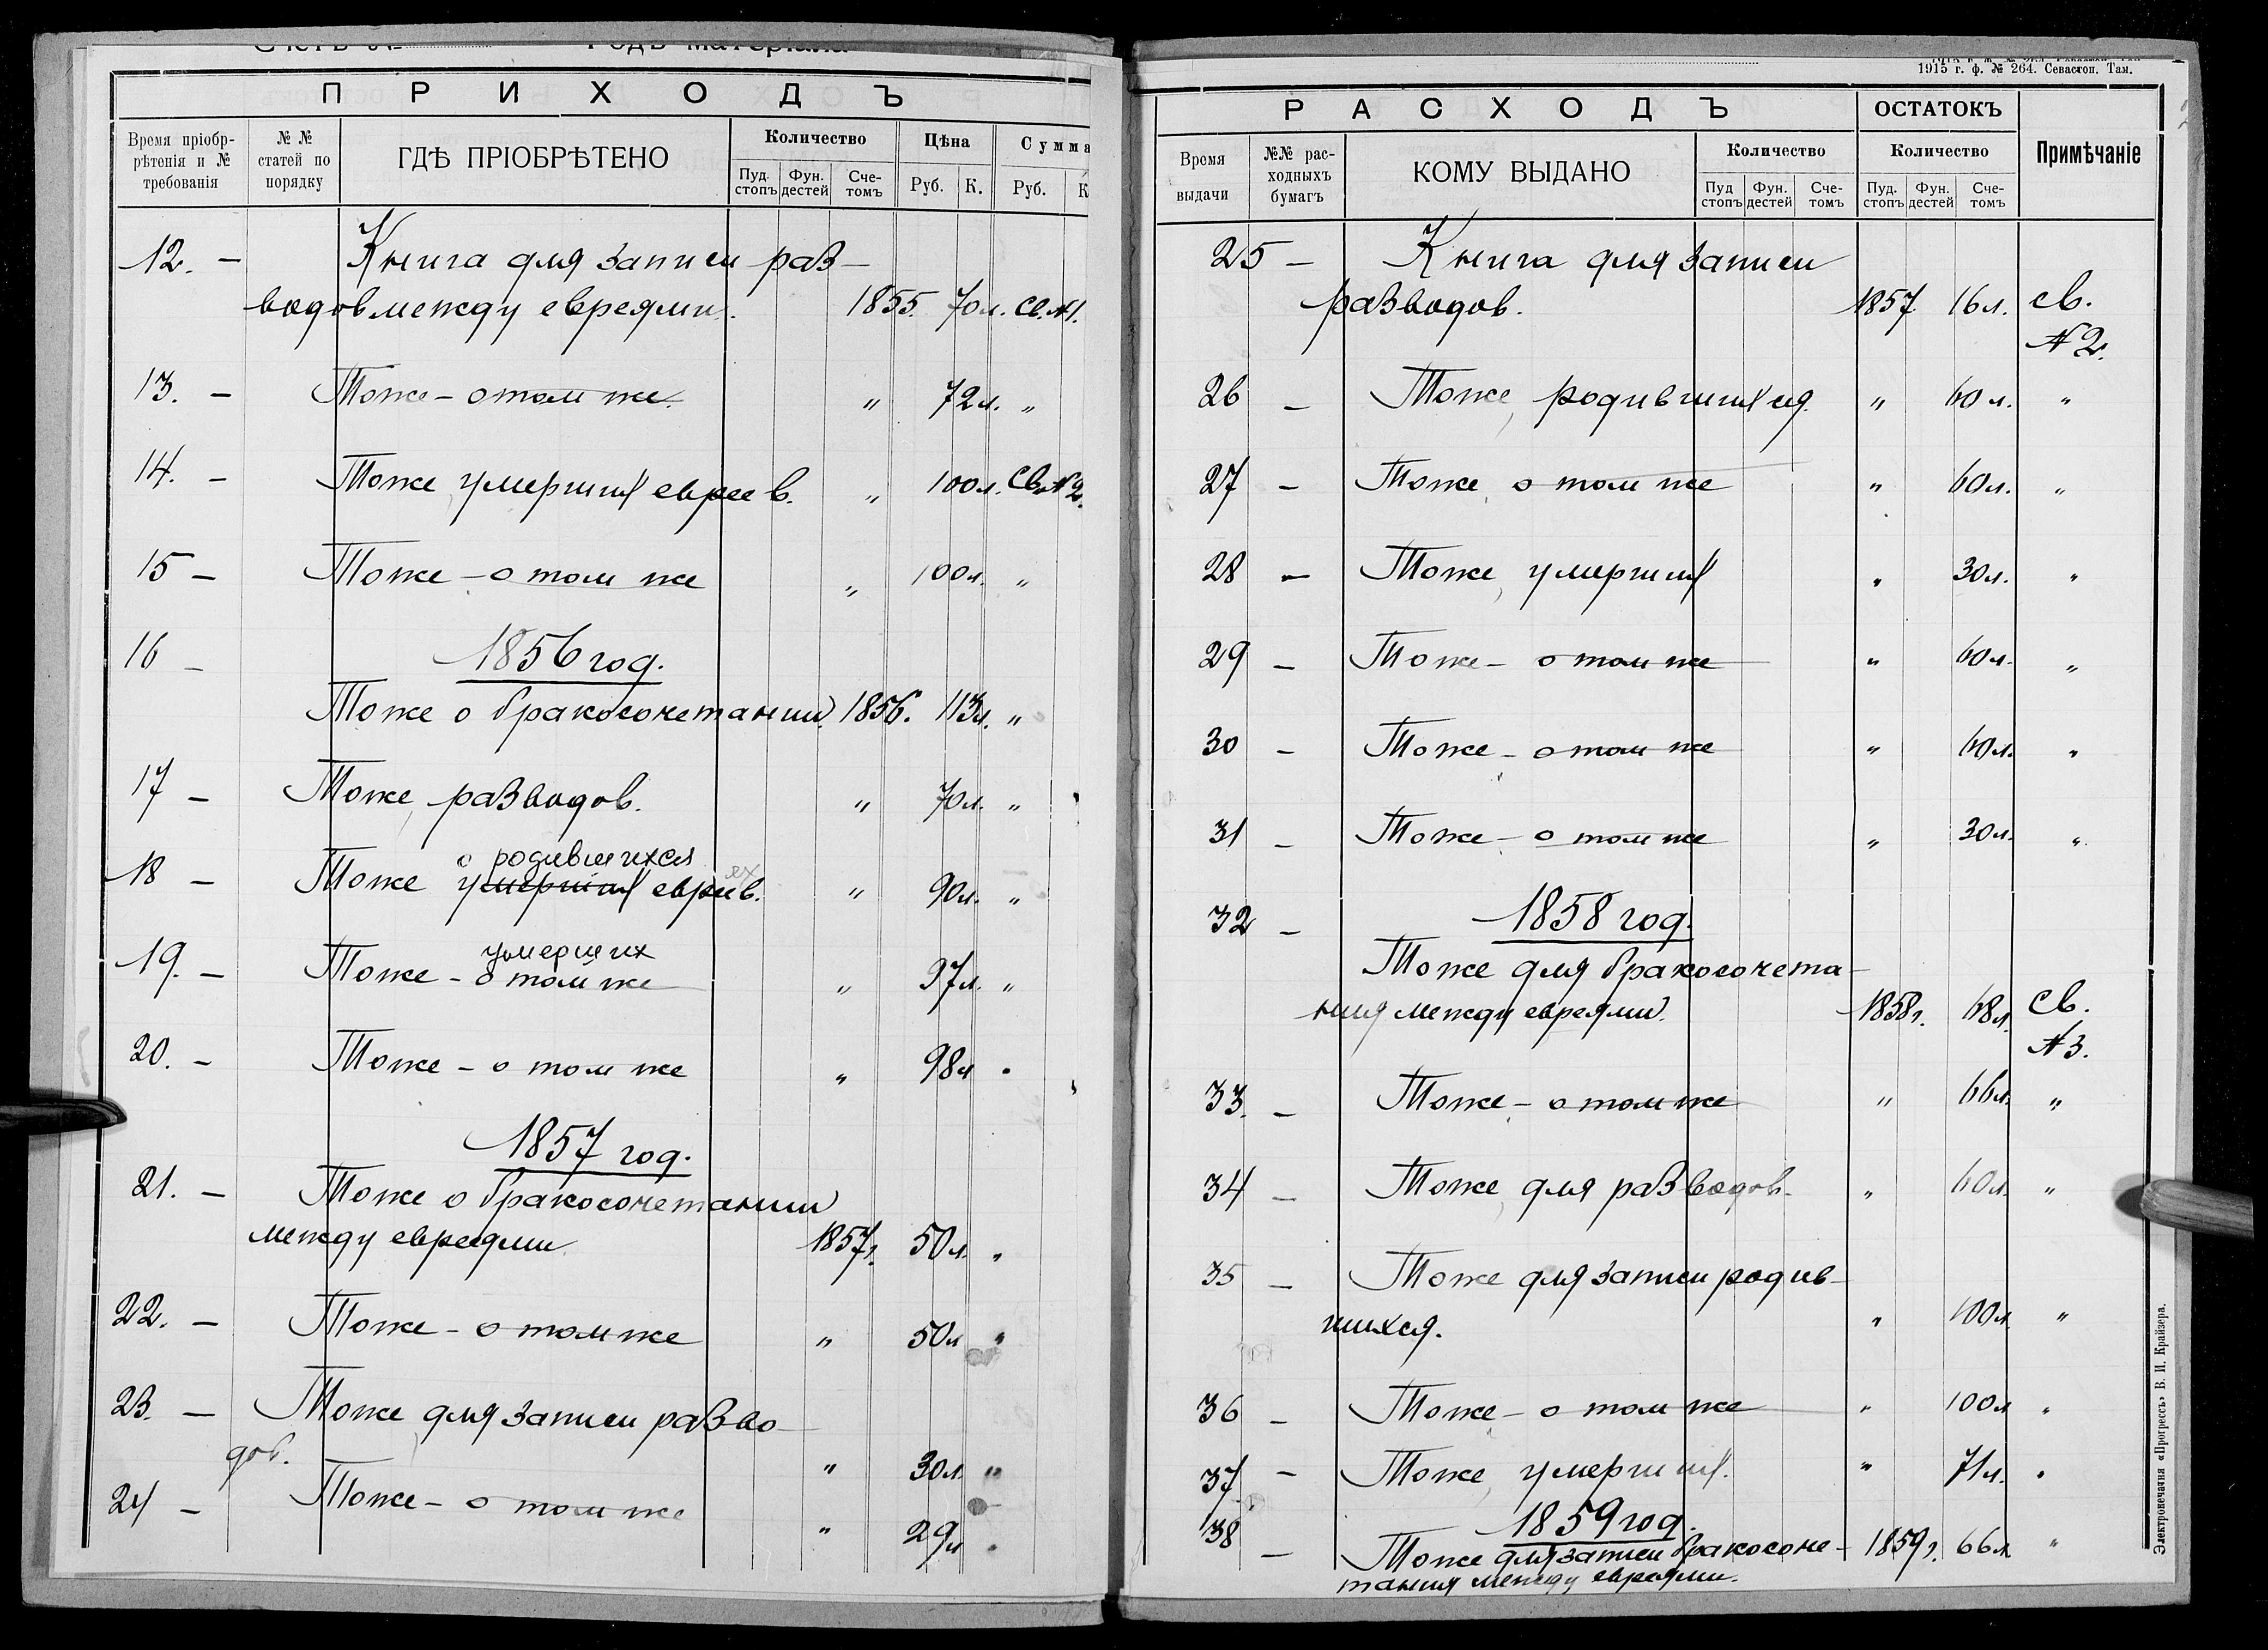 П Р И Х О Д Ъ
Время пріобр-
рѣтенія и №
требованія
№ №
статей по
порядку
ГДѢ ПРІОБРѢТЕНО
Количество
Пуд. стопъ
Фун. дестей
Сче-томъ
Цѣна
Руб. К.
Сумма
Руб. К
12. – Книга для записи раз-
водов между евреями. 1855. 70 л. Св. №1.
13. – Тоже – о том же. " 72 л. "
14. – Тоже, умерших евреев. " 100 л. Св. №2.
15 – Тоже – о том же " 100 л. "
16 – 1856 год.
Тоже о бракосочетании. 1856. 113 л. "
17 – Тоже, разводов. " 70 л. "
о родившихся
18 – Тоже умерших евреев. " 90 л. "
умерших
19. – Тоже – о том же " 97 л. "
20. – Тоже – о том же " 98 л "
1857 год.
21. – Тоже о бракосочетании
между евреями 1857 г. 50 л. "
22. – Тоже – о том же " 50 л "
23. – Тоже, для записи разво-
дов. " 30 л. "
24 – Тоже – о том же " 29 л "
1915 г. ф. № 264. Севастоп. Там.
Р А С Х О Д Ъ
ОСТАТОКЪ
Примѣчаніе
Время
выдачи
№№ рас-
ходныхъ
бумагъ
КОМУ ВЫДАНО
Количество
Пуд стопъ
Фун. дестей
Сче-томъ
Количество
Пуд. стопъ
Фун. дестей
Сче-томъ
25 – Книга для записи
разводов. 1857 16 л. св.
№ 2.
26 – Тоже, родившихся. " 60 л. "
27 – Тоже, о том же " 60 л. "
28 – Тоже, умерших " 30 л. "
29 – Тоже – о том же " 60 л. "
30 – Тоже – о том же " 60 л. "
31 – Тоже – о том же " 30 л. "
32 – 1858 год.
Тоже для бракосочета-
ния между евреями. 1858 г. 68 л. св.
№ 3.
33. – Тоже – о том же " 66 л. "
34 – Тоже, для разводов. " 60 л. "
35 – Тоже для записи родив-
шихся. " 100 л. "
36 – Тоже – о том же " 100 л "
37 – Тоже, умерших. " 71 л. "
1859 год.
38 – Тоже для записи бракосоче- 1859 г. 66 л. "
тания между евреями.
Электропечатня «Прогрессъ» В. И. Крайзера.